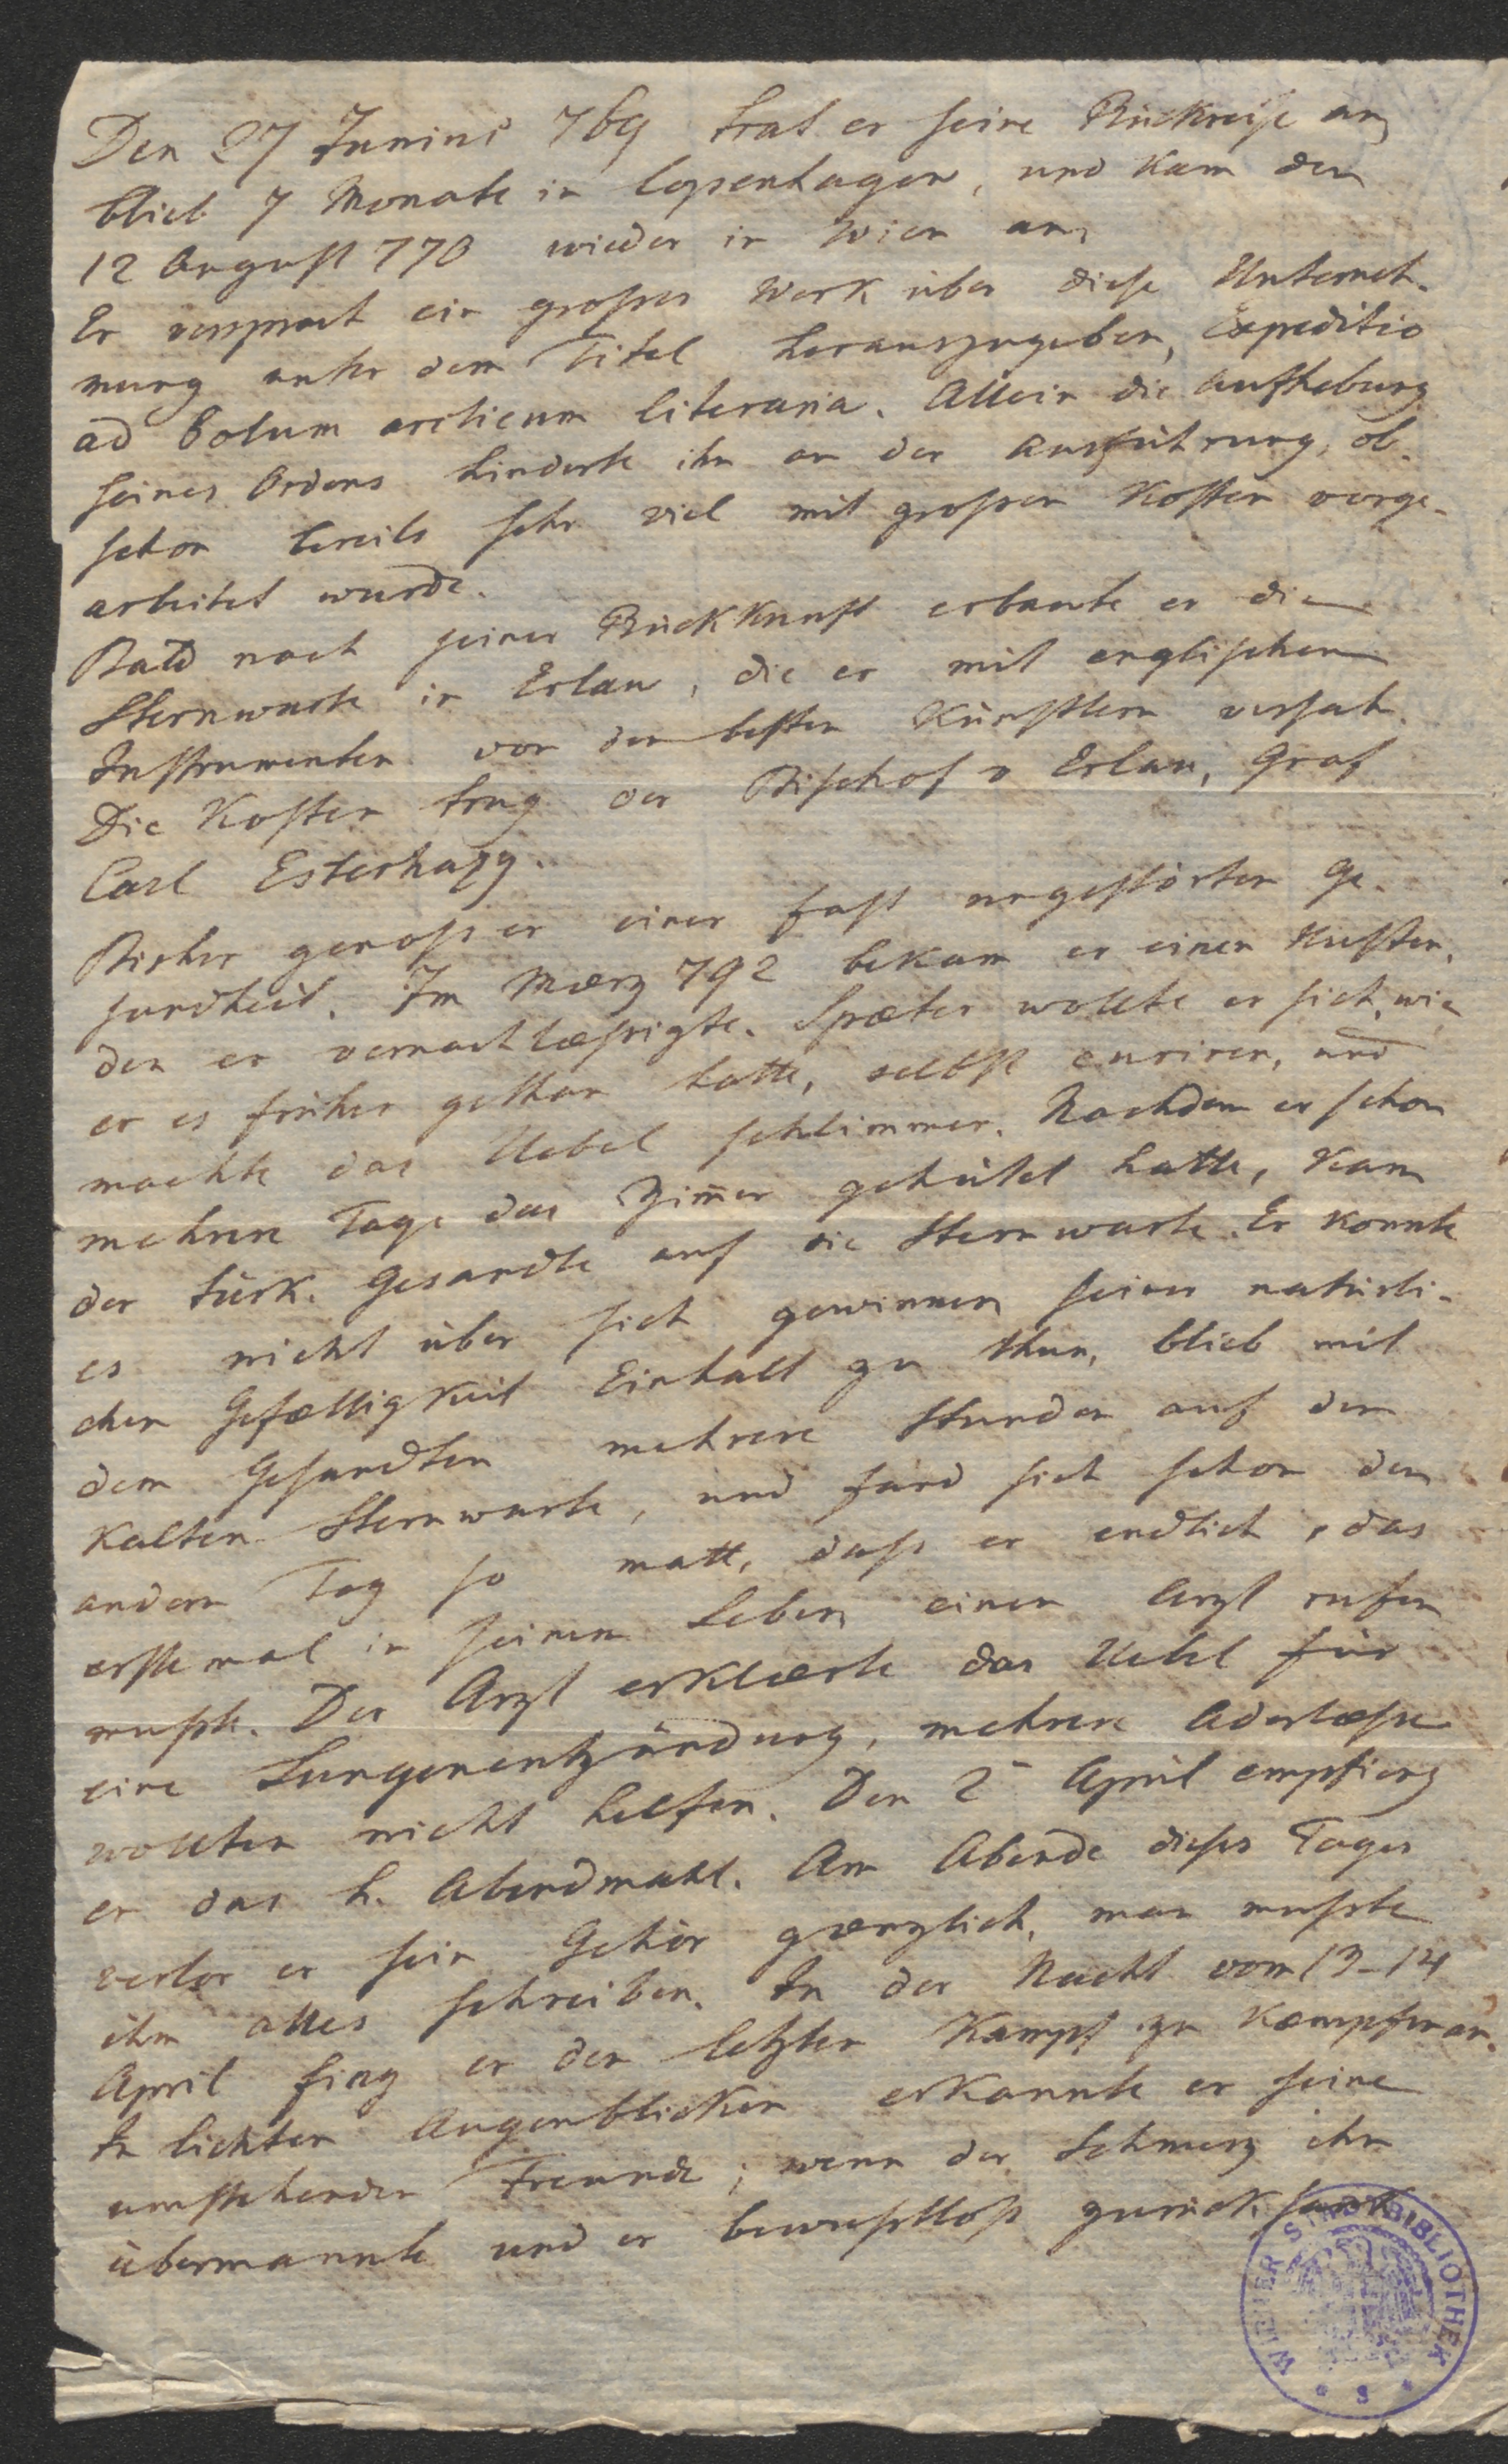 Den 27 Junius 769 trat er seine Rückreise an,
blieb 7 Monate in Copenhagen, und kam den
12 August 770 wieder in Wien an,
Er versprach ein großes Werk über diese Unterneh-
mung unter dem Titel herauszugeben, Expeditio
ad Polum arcticum literaria. Allein die Aufhebung
seines Ordens hinderte ihn an der Ausführung, ob-
schon bereits sehr viel mit großen Kosten vorge-
arbeitet wurde.
Bald nach seiner Rückkunft erbaute er die
Sternwarte in Erlau, die er mit englischen
Instrumenten von den besten Künstlern versah.
Die Kosten trug der Bischof v Erlau, Graf
Carl Esterhazy.
Bisher genoß er einer fast ungestörten Ge-
sundheit. Im Maerz 792 bekam er einen Husten,
den er vernachlaeßigte. Spaeter wollte er sich, wie
er es früher gethan hatte, selbst curiren, und
machte das Uebel schlimmer. Nachdem er schon
mehrere Tage das Zim̅er gehütet hatte, kam
der türk. Gesandte auf die Sternwarte. Er konnte
es nicht über sich gewinnen seiner natürli-
chen Gefaelligkeit Einhalt zu thun, blieb mit
dem Gesandten mehrere Stunden auf der
kalten Sternwarte, und fand sich schon den
andern Tag so matt, daß er endlich, das
erstemal in seinem Leben einen Arzt rufen
mußte. Der Arzt erklaerte das Uebel für
eine Lungenentzündung, mehrere Aderlaeße
wollten nicht helfen. Den 2 April empfieng
er das h. Abendmahl. Am Abende dieses Tages
verlor er sein Gehör gaenzlich, man mußte
ihm alles schreiben. In der Nacht vom 13-14
April fing er den letzten Kampf zu kaempfen an.
In lichten Augenblicken erkannte er seine
umstehenden Freunde; wenn der Schmerz ihn
übermannte und er bewußtloß zurück sank
WIENER STADTBIBLIOTHEK